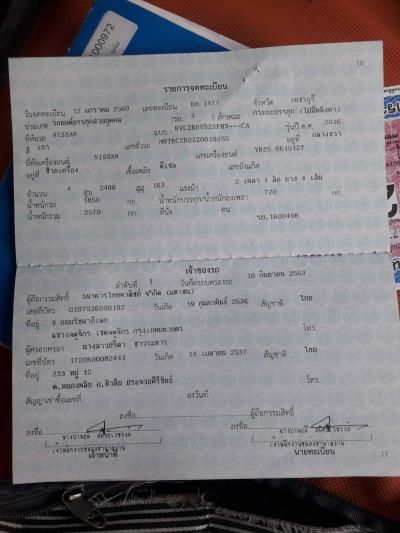 1000972
10
รายการจดทะเบียน
วันจดทะเบียน 12 มกราคม 2560 เลขทะเบียน 1477 จังหวัด เพชรบุรี
ประเภท รถยนต์บรรทุกส่วนบุคคล (รย. 3 ) ลักษณะ กระบะบรรทุก (ไม่มีหลังคา)
ยี่ห้อรถ NISSAN แบบ รุ่นปี ค.ศ. 2016
สี เทา เลขตัวรถ อยู่ที่ กลางขวา
ยี่ห้อเครื่องยนต์ NISSAN เลขเครื่องยนต์ YD25 6615127
อยู่ที่ ซ้ายเครื่อง เชื้อเพลิง ดีเซล เลขถังแก๊ส
จำนวน 4 สูบ 2488 ซีซี 163 แรงม้า 2 เพลา 4 ล้อ ยาง 4 เส้น
น้ำหนักรถ 1850 กก. น้ำหนักบรรทุก/น้ำหนักลงเพลา 720 กก.
น้ำหนักรวม 2570 กก. ที่นั่ง คน
รย.1600498
เจ้าของรถ
ลำดับที่ 1 วันที่ครอบครองรถ 10 กันยายน 2563
ผู้ถือกรรมสิทธิ์ ธนาคารไทยพาณิชย์ จำกัด (มหาชน)
เลขที่บัตร 0107536000102 วันเกิด 19 กุมภาพันธ์ 2536 สัญชาติ ไทย
ที่อยู่ 9 ถนนรัชดาภิเษก
แขวงจตุจักร เขตจตุจักร กรุงเทพมหานคร โทร.
ผู้ครอบครอง นางสาวสริตา
เลขที่บัตร 1720600082441 วันเกิด 14 เมษายน 2537 สัญชาติ ไทย
ที่อยู่ 233 หมู่ 10
ต.หนองพลับ อ.หัวหิน ประจวบคีรีขันธ์ โทร.
สัญญาเช่าซื้อเลขที่ ลงวันที่
ลงชื่อ ผู้ถือกรรมสิทธิ์
ลงชื่อ ลงชื่อ
เจ้าหน้าที่ นายทะเบียน
11